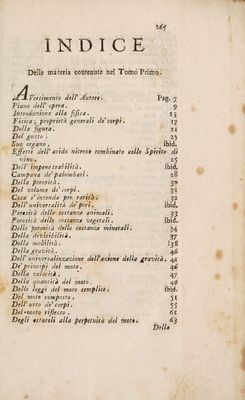 265
INDICE
Delle materia contenute nel Tomo Primo.
AVertimento dell' Autore. Pag. 7
Piano dell' opera. 9
Introduzione alla fisica. 13
Fisica; proprietà generali de' corpi. 17
Della figura. 21
Del gusto. 23
Suo organo. ibid.
Effetti dell' acido nitroso combinato collo Spirito di
vino. 25
Dell' impenetrabilità. ibid.
Campana de' palombari. 28
Della porosità. 30
Del volume de' corpi. 31
Cosa s' intenda per rarità. 32
Dell' universalità de' pori. ibid.
Porosità delle sostanze animali. 33
Porosità delle sostanze vegetali. ibid.
Delle porosità delle sostanze minerali. 34
Della divisibilità. 37
Della mobilità. 138
Della gravità. 46
Dell' universalizzazione dell' azione della gravità.
De' principj del moto. 46
Della velocità. 47
Della quantità del moto. 49
Delle leggi del moto semplice. ibid.
Del moto composto. 51
Dell' urto de' corpi. 55
Del moto riflesso. 61
Degli ostacoli alla perpetuità del moto. 63
Della